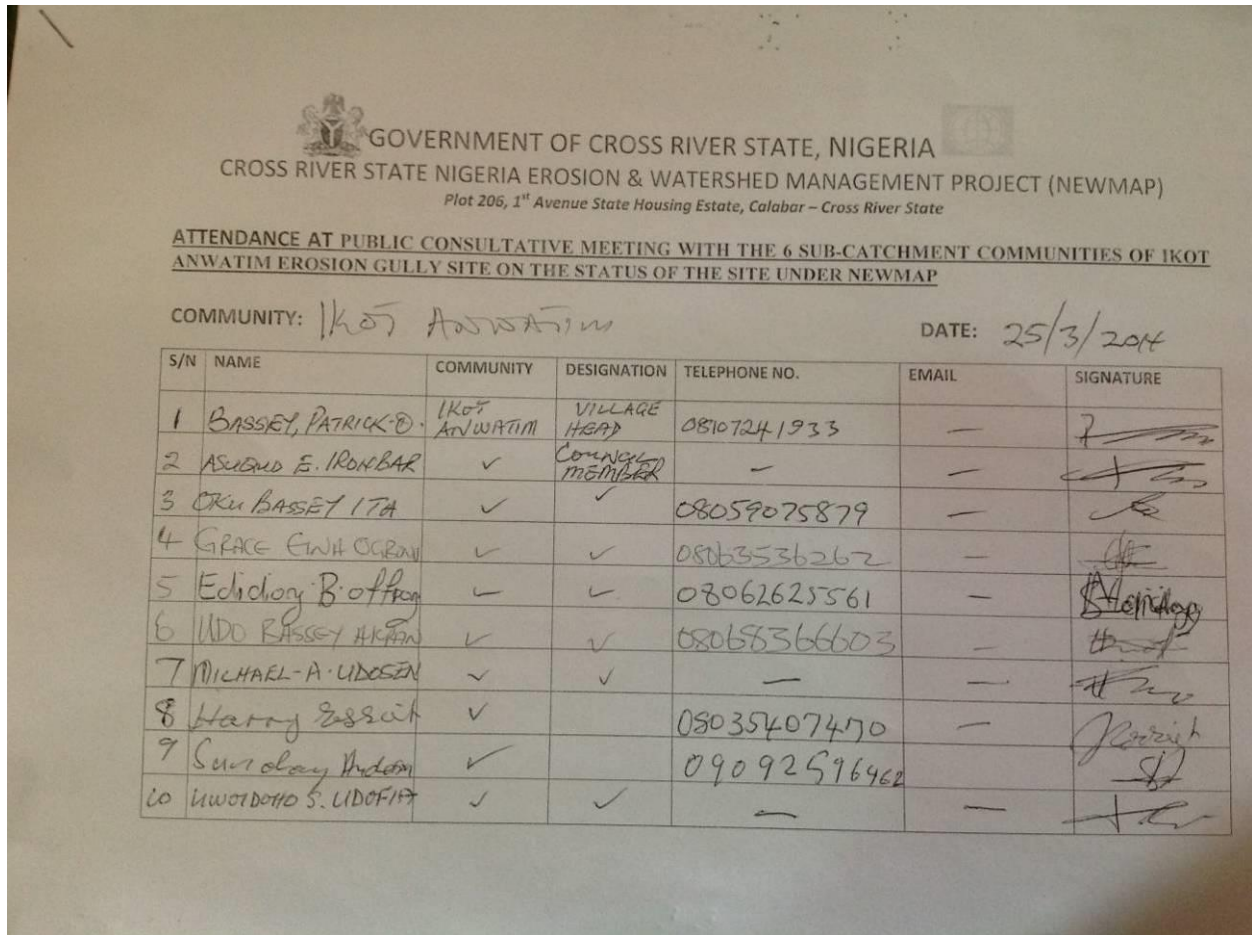 GOVERNMENT OF CROSS RIVER STATE, NIGERIA
CROSS RIVER STATE NIGERIA EROSION & WATERSHED MANAGEMENT PROJECT (NEWMAP)
Plot 206, 1st Avenue State Housing Estate, Calabar – Cross River State
ATTENDANCE AT PUBLIC CONSULTATIVE MEETING WITH THE 6 SUB-CATCHMENT COMMUNITIES OF IKOT
ANWATIM EROSION GULLY SITE ON THE STATUS OF THE SITE UNDER NEWMAP
COMMUNITY: IKOT ANWATIM DATE: 25/3/2014
S/N NAME COMMUNITY DESIGNATION TELEPHONE NO. EMAIL SIGNATURE
1 BASSEY, PATRICK O. IKOT ANWATIM VILLAGE HEAD 08107241933 —
2 ASUQUO E. IRONBAR ✓ COUNCIL MEMBER — —
3 OKU BASSEY ITA ✓ ✓ 08059075879 —
4 GRACE ✓ ✓ 08063536262 —
5 Edidiong B. offiong ✓ ✓ 08062625561 —
6 UDO BASSEY AKPAN ✓ ✓ 08068366603 —
7 MICHAEL-A. UDOSEN ✓ ✓ — —
8 Harry ✓ 08035407470 —
9 Sunday ✓ 09092596962
10 S. UDOFIA ✓ ✓ — —